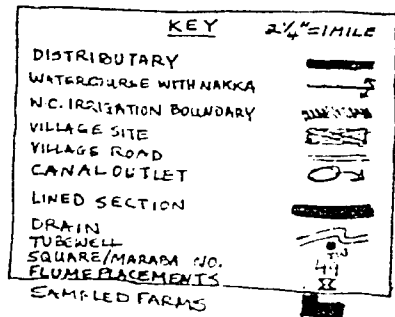 KEY 2¼" = 1 MILE
DISTRIBUTARY
WATERCOURSE WITH NAKKA
N.C. IRRIGATION BOUNDARY
VILLAGE SITE
VILLAGE ROAD
CANAL OUTLET
LINED SECTION
DRAIN
TUBEWELL TW
SQUARE/MARABA NO. 49
FLUME PLACEMENTS
SAMPLED FARMS